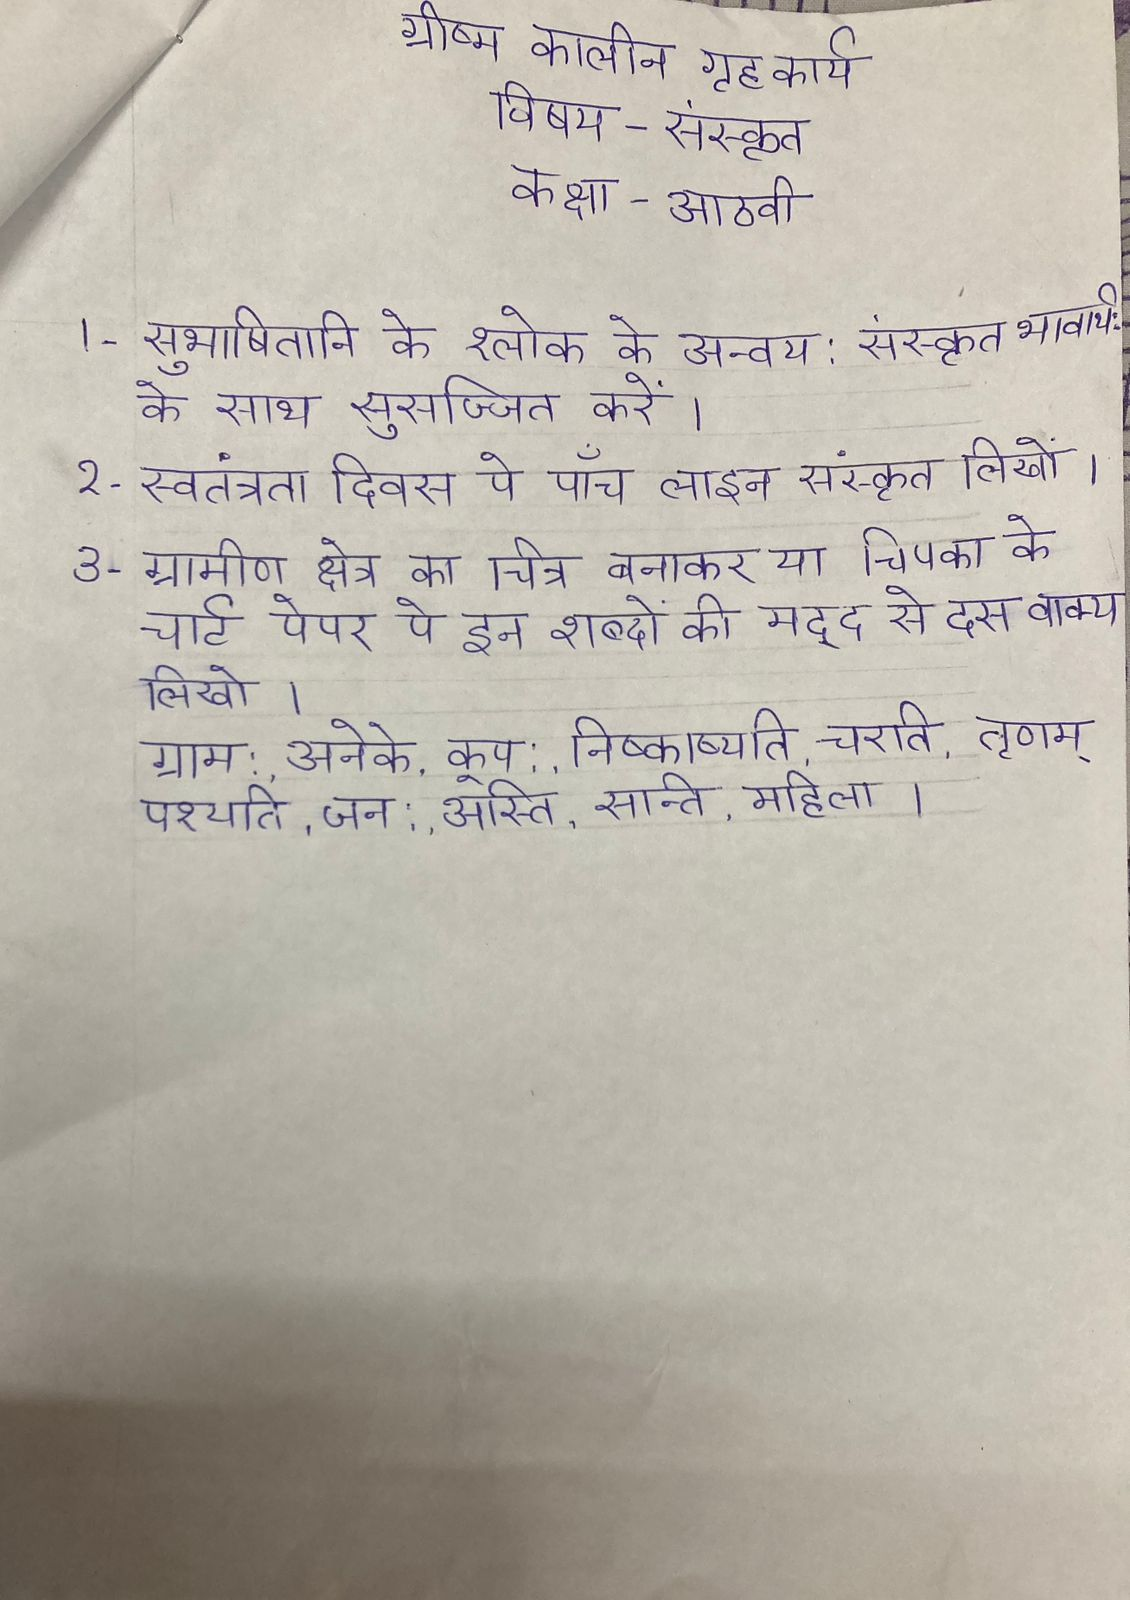 ग्रीष्म कालीन गृहकार्य
विषय - संस्कृत
कक्षा - आठवी
1- सुभाषितानि के श्लोक के अन्वय: संस्कृत भावार्थ:
के साथ सुसज्जित करें।
2- स्वतंत्रता दिवस पे पाँच लाइन संस्कृत लिखों।
3- ग्रामीण क्षेत्र का चित्र बनाकर या चिपका के
चार्ट पेपर पे इन शब्दों की मद्द से दस वाक्य
लिखो।
ग्राम:, अनेके, कूप:, निष्काष्यति, चरति, तृणम्
पश्यति, जन:, अस्ति, सान्ति, महिला।